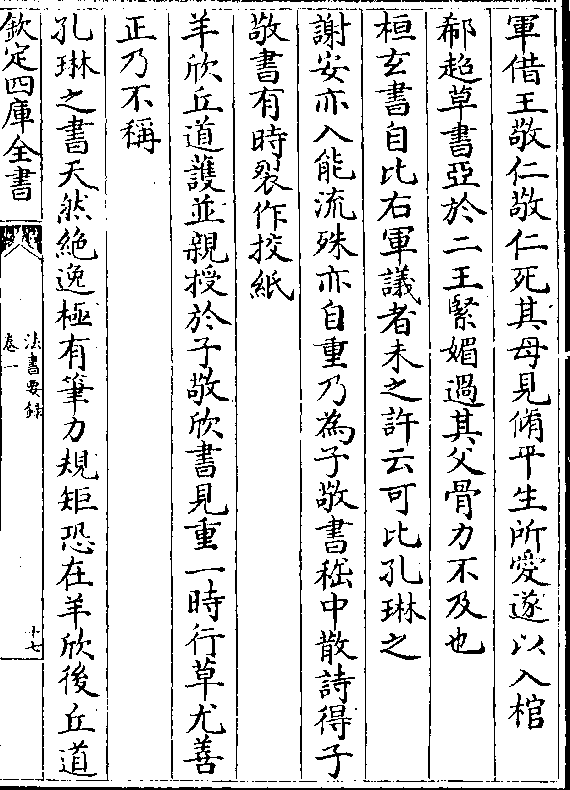 軍借王敬仁敬仁死其母見脩平生所愛遂以入棺
郗超草書亞於二王緊媚過其父骨力不及也
桓玄書自比右軍議者未之許云可比孔琳之
謝安亦入能流殊亦自重乃為子敬書嵇中散詩得子
敬書有時裂作挍紙
羊欣丘道護並親授於子敬欣書見重一時行草尤善
正乃不稱
孔琳之書天然絶逸極有筆力規矩恐在羊欣後丘道
欽定四庫全書
法書要録
卷一
十七